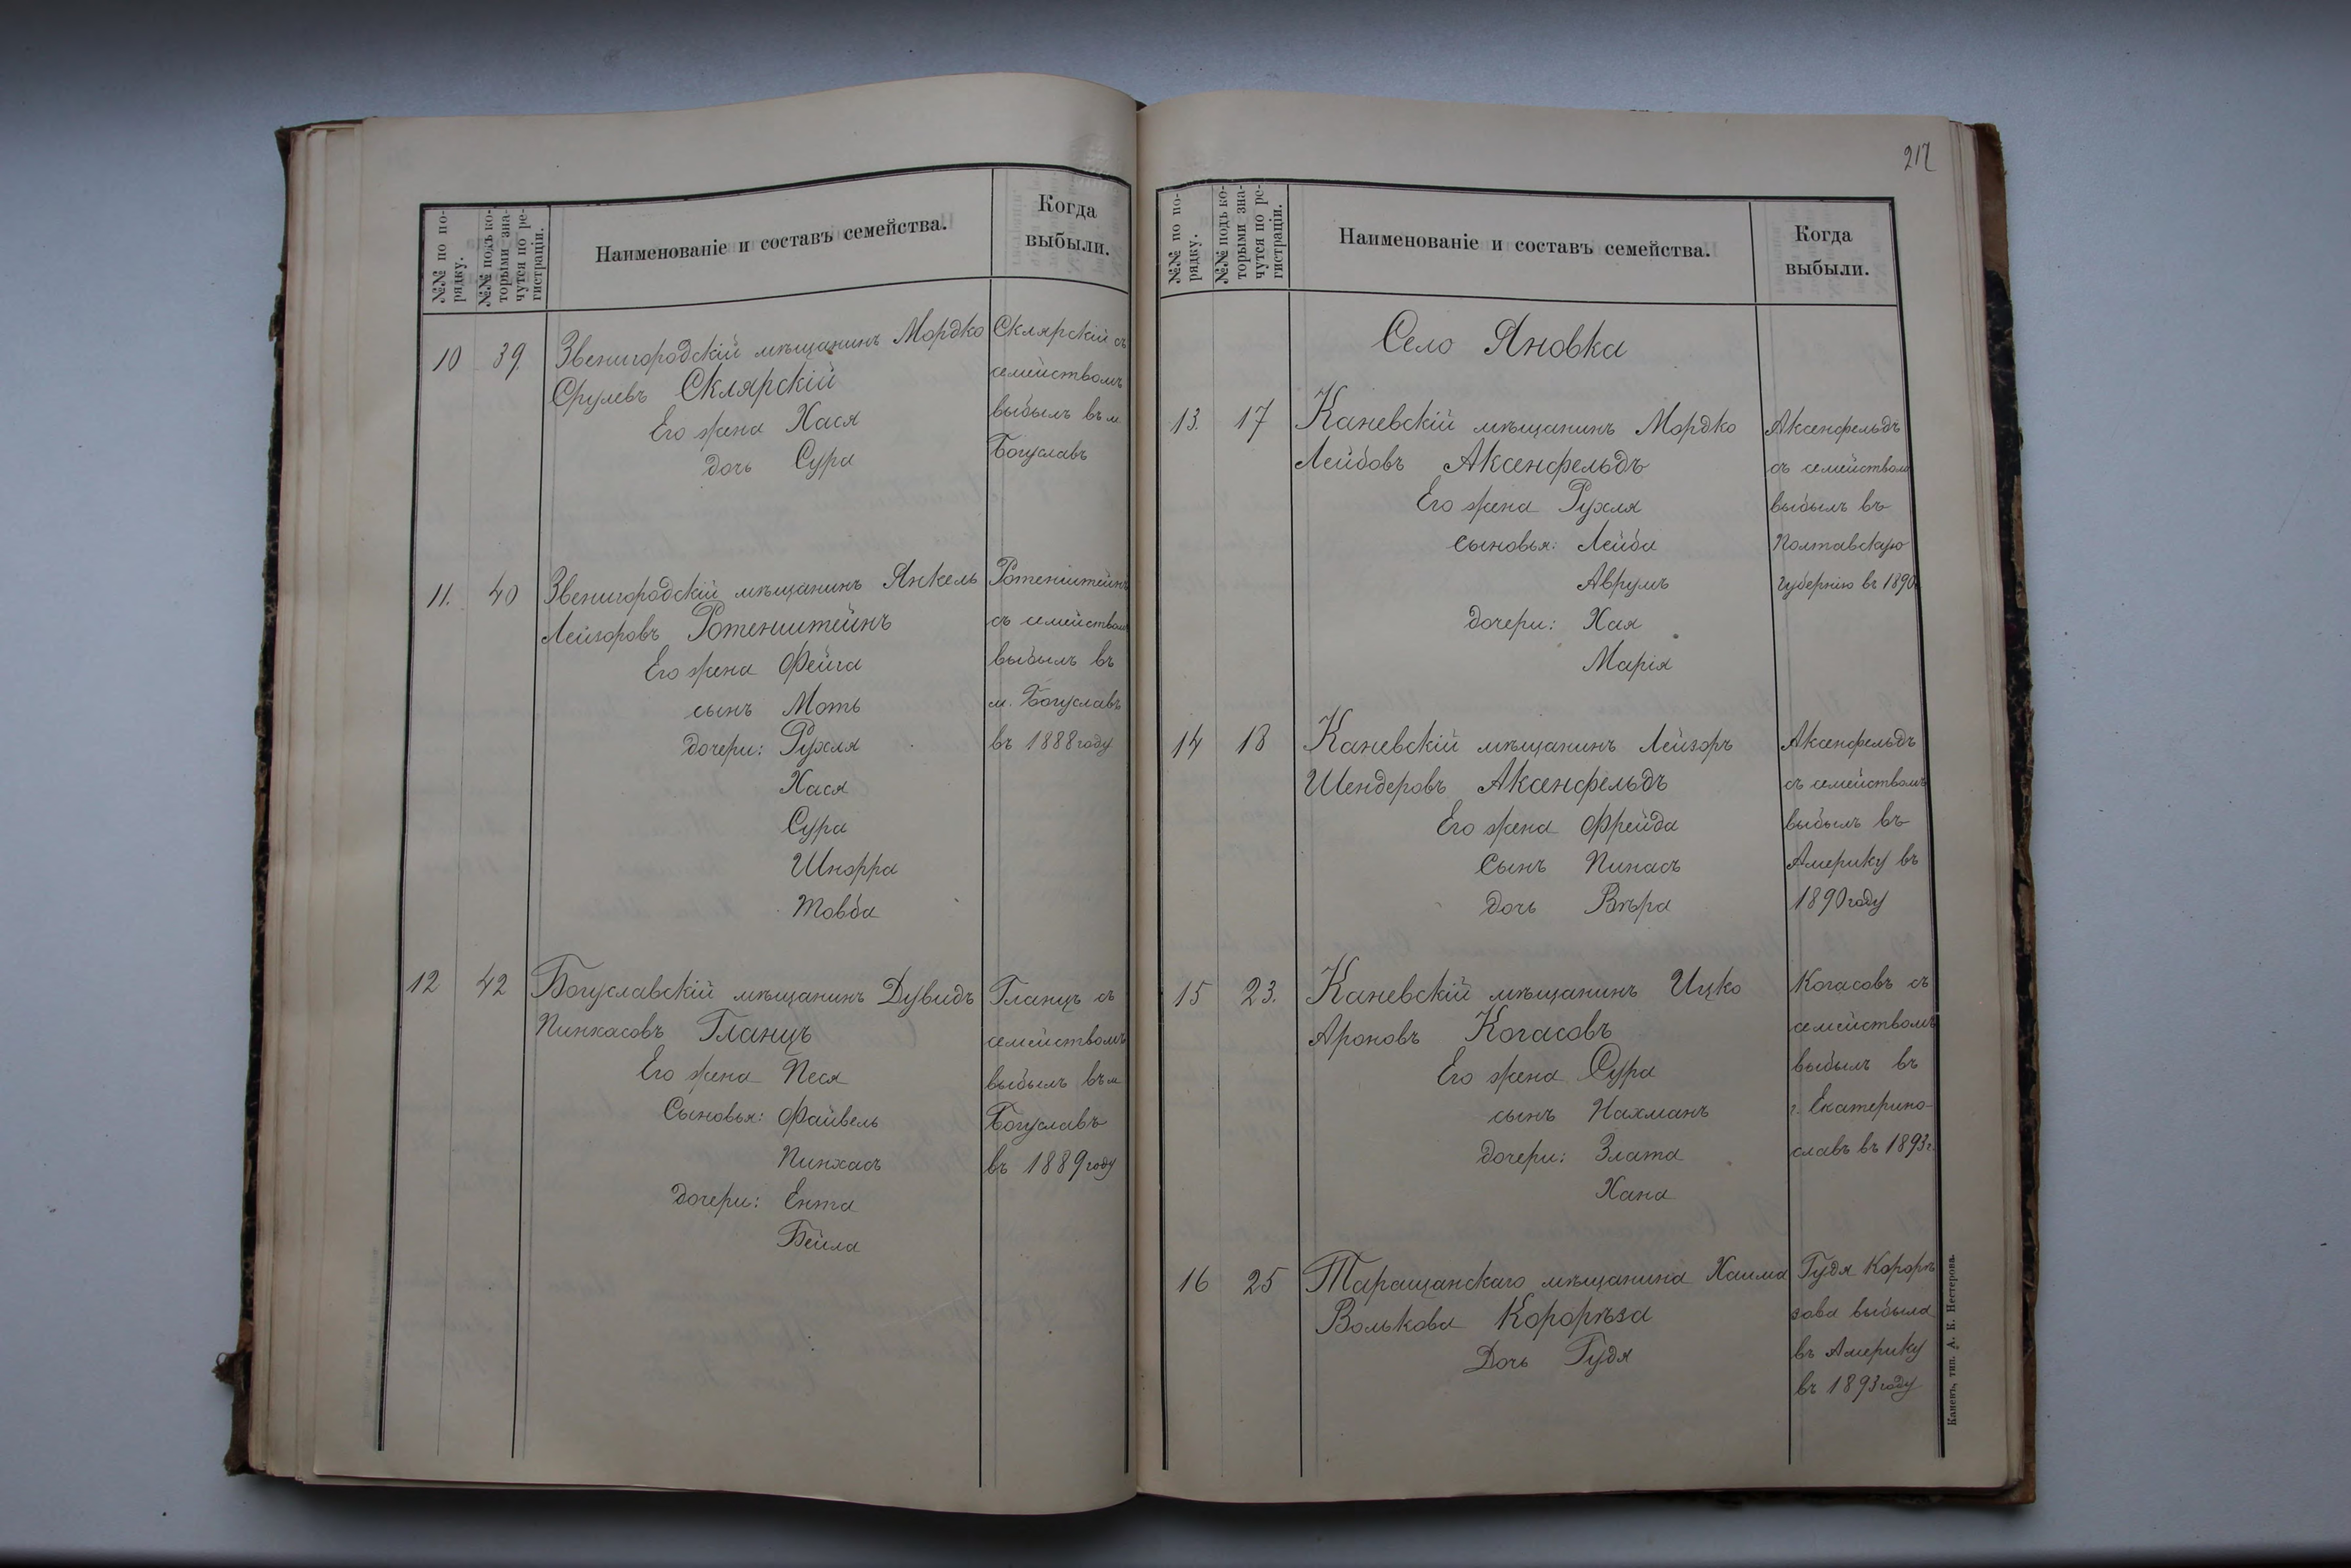 №№ по по-
рядку.
№№ подъ ко-
торыми зна-
чутся по ре-
гистраціи.
Наименованіе и составъ семейства.
Когда
выбыли.
10 39. Звенигородскій мѣщанинъ Мордко
Срулевъ Склярскій
Его жена Хася
дочь Сура
Склярскій съ
семействомъ
выбылъ въ м
Богуславъ
11. 40 Звенигородскій мѣщанинъ Янкель
Лейзоровъ Ротенштейнъ
Его жена Фейга
сынъ Моть
дочери: Рухля
Хася
Сура
Шнорра
Товба
Ротенштейнъ
съ семействомъ
выбылъ въ
м. Богуславъ
въ 1888 году
12 42 Богуславскій мѣщанинъ Дувидъ
Пинкасовъ Гланцъ
Его жена Песя
Сыновья: Файвель
Пинхасъ
дочери: Ента
Бейла
Гланцъ съ
семействомъ
выбылъ въ м
Богуславъ
въ 1889 году
217
№№ по по-
рядку.
№№ подъ ко-
торыми зна-
чутся по ре-
гистраціи.
Наименованіе и составъ семейства.
Когда
выбыли.
Село Яновка
13. 17 Каневскій мѣщанинъ Мордко
Лейбовъ Аксенфельдъ
Его жена Рухля
сыновья: Лейба
Аврумъ
дочери: Хая
Марія
Аксенфельдъ
съ семействомъ
выбылъ въ
Полтавскую
губернію въ 1890
14 18 Каневскій мѣщанинъ Лейзоръ
Шендеровъ Аксенфельдъ
Его жена Фрейда
Сынъ Пинасъ
дочь Вѣра
Аксенфельдъ
съ семействомъ
выбылъ въ
Америку въ
1890 году
15 23. Каневскій мѣщанинъ Ицко
Ароновъ Когасовъ
Его жена Сура
сынъ Нахманъ
дочери: Злата
Хана
Когасовъ съ
семействомъ
выбылъ въ
г. Екатерино-
славъ въ 1893 г.
16 25 Таращанскаго мѣщанина Хаима
Волькова Корорѣза
Дочь Гудя
Гудя Корорѣ
зова выбыла
въ Америку
въ 1893 году
Каневъ, тип. А. Б. Нестерова.